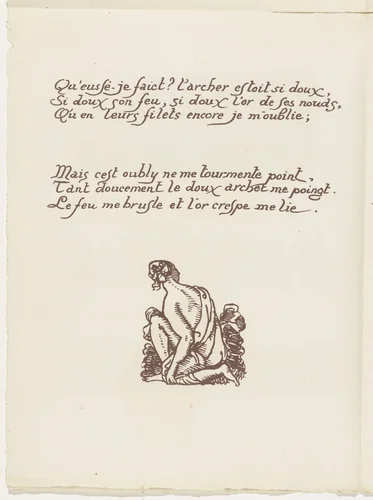 Qu'eussé-je faict? l'archer estoit si doux,
Si doux son feu, si doux l'or de ses nouds,
Qu'en leurs filets encore je m'oublie;
Mais cest oubly ne me tourmente point,
Tant doucement le doux archet me poingt.
Le feu me brusle et l'or crespe me lie.